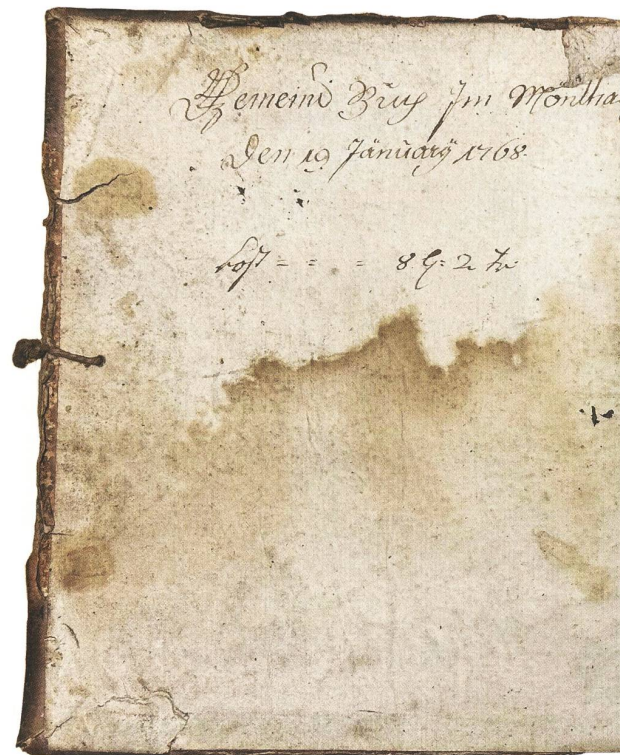 Gemeind Buch Im Mönltha
Den 19 Jänuarÿ 1768.
kost = = = 8 2